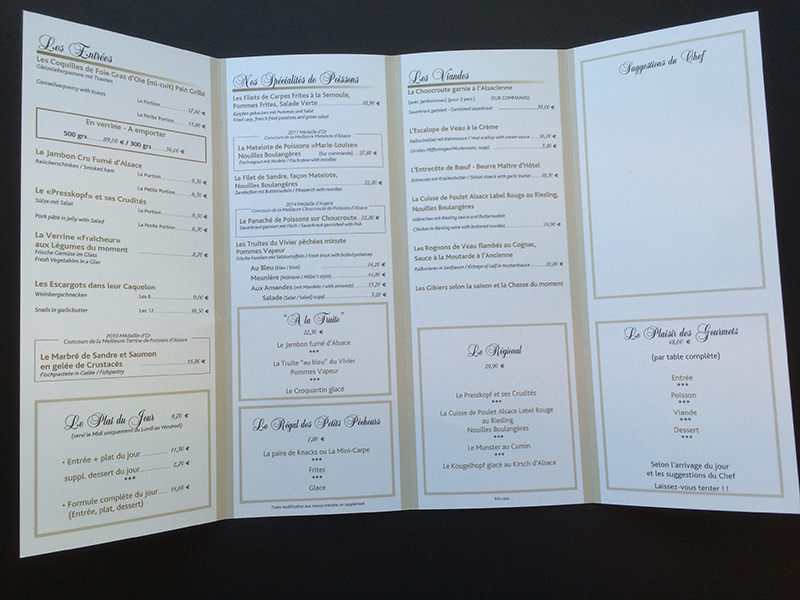 Les Entrées
Les Coquilles de Foie Gras d'Oie (mi-cuit) Pain Grillé
Gänseleberpastete mit Toasten
La Portion 17,60 €
Gooseliverpastry with toasts
La Petite Portion 11,80 €
En verrine - A emporter
500 grs 89,00 € / 300 grs 56,00 €
Le Jambon Cru Fumé d'Alsace
Raücherschinken / Smoked ham
La Portion 9,50 €
La Petite Portion 6,50 €
Le «Presskopf» et ses Crudités
Sülze mit Salat
La Portion 9,50 €
Pork pâté in jelly with Salad
La Petite Portion 6,50 €
La Verrine «Fraîcheur»
aux Légumes du moment 8,20 €
Frische Gemüse im Glass
Fresh Vegetables in a Glas
Les Escargots dans leur Caquelon
Weinbergschnecken Les 6 9,00 €
Snails in garlicbutter Les 12 16,50 €
2010 Médaille d'Or
Concours de la Meilleure Terrine de Poissons d'Alsace
Le Marbré de Sandre et Saumon
en gelée de Crustacés 15,00 €
Fischpastete in Gelée / Fishpastry
Le Plat du Jour 9,70 €
(servi le Midi uniquement du Lundi au Vendredi)
• Entrée + plat du jour 11,50 €
suppl. dessert du jour 2,20 €
***
• Formule complète du jour 14,00 €
(Entrée, plat, dessert)
Nos Spécialités de Poissons
Les Filets de Carpes Frites à la Semoule,
Pommes Frites, Salade Verte 18,90 €
Karpfen gebacken mit Pommes und Salat
Fried carp, french fried potatoes and green salad
2011 Médaille d'Or
Concours de la Meilleure Matelote d'Alsace
La Matelote de Poissons «Marie-Louise»
Nouilles Boulangères (Sur commande) 27,80 €
Fischragout mit Nudeln / Fisch stew with noodles
Le Filet de Sandre, façon Matelote,
Nouilles Boulangères 22,80 €
Zanderfilet mit Butternudeln / Pikeperch with noodles
2014 Médaille d'Argent
Concours de la Meilleure Choucroute de Poissons d'Alsace
Le Panaché de Poissons sur Choucroute 22,80 €
Sauerkraut garniert mit Fisch / Sauerkraut garnished with Fish
Les Truites du Vivier pêchées minute
Pommes Vapeur
Frische Forellen mit Salzkartoffeln / Fresh trout with boiled potatoes
Au Bleu (blau / blue) 14,20 €
Meunière (Müllerin / Miller's style) 14,80 €
Aux Amandes (mit Mandeln / with almonds) 15,20 €
Salade (Salat / Salad) suppl. 3,20 €
"A la Truite"
22,50 €
Le Jambon fumé d'Alsace
***
La Truite "au bleu" du Vivier
Pommes Vapeur
***
Le Croquantin glacé
Le Régal des Petits Pêcheurs
7,80 €
La paire de Knacks ou La Mini-Carpe
***
Frites
***
Glace
Toute modification aux menus entraîne un supplément
Les Viandes
La Choucroute garnie à l'Alsacienne
(avec jambonneau) (pour 2 pers.) (SUR COMMANDE) 39,60 €
Sauerkraut garniert - Garnished sauerkraut
L'Escalope de Veau à la Crème
Kalbschnitzel mit Rahmsauce / Veal scallop with cream sauce 16,20 €
Girolles-Pfifferlingen/Mushrooms, suppl. 3,80 €
L'Entrecôte de Bœuf - Beurre Maître d'Hôtel
Entrecote mit Kraüterbutter / Sirloin steack with garlic butter 18,50 €
La Cuisse de Poulet Alsace Label Rouge au Riesling,
Nouilles Boulangères
Hähnchen mit Riesling sauce und Butternudeln
Chicken in Riesling wine with buttered noodles 14,90 €
Les Rognons de Veau flambés au Cognac,
Sauce à la Moutarde à l'Ancienne
Kalbsnieren in Senfsauce / Kidneys of calf in mustardsauce 20,80 €
Les Gibiers selon la saison et la Chasse du moment
Le Régional
29,90 €
Le Presskopf et ses Crudités
***
La Cuisse de Poulet Alsace Label Rouge
au Riesling
Nouilles Boulangères
***
Le Munster au Cumin
***
Le Kougelhopf glacé au Kirsch d'Alsace
Prix nets
Suggestions du Chef
Le Plaisir des Gourmets
48,00 €
(par table complète)
Entrée
***
Poisson
***
Viande
***
Dessert
***
Selon l'arrivage du jour
et les suggestions du Chef
Laissez-vous tenter ! !